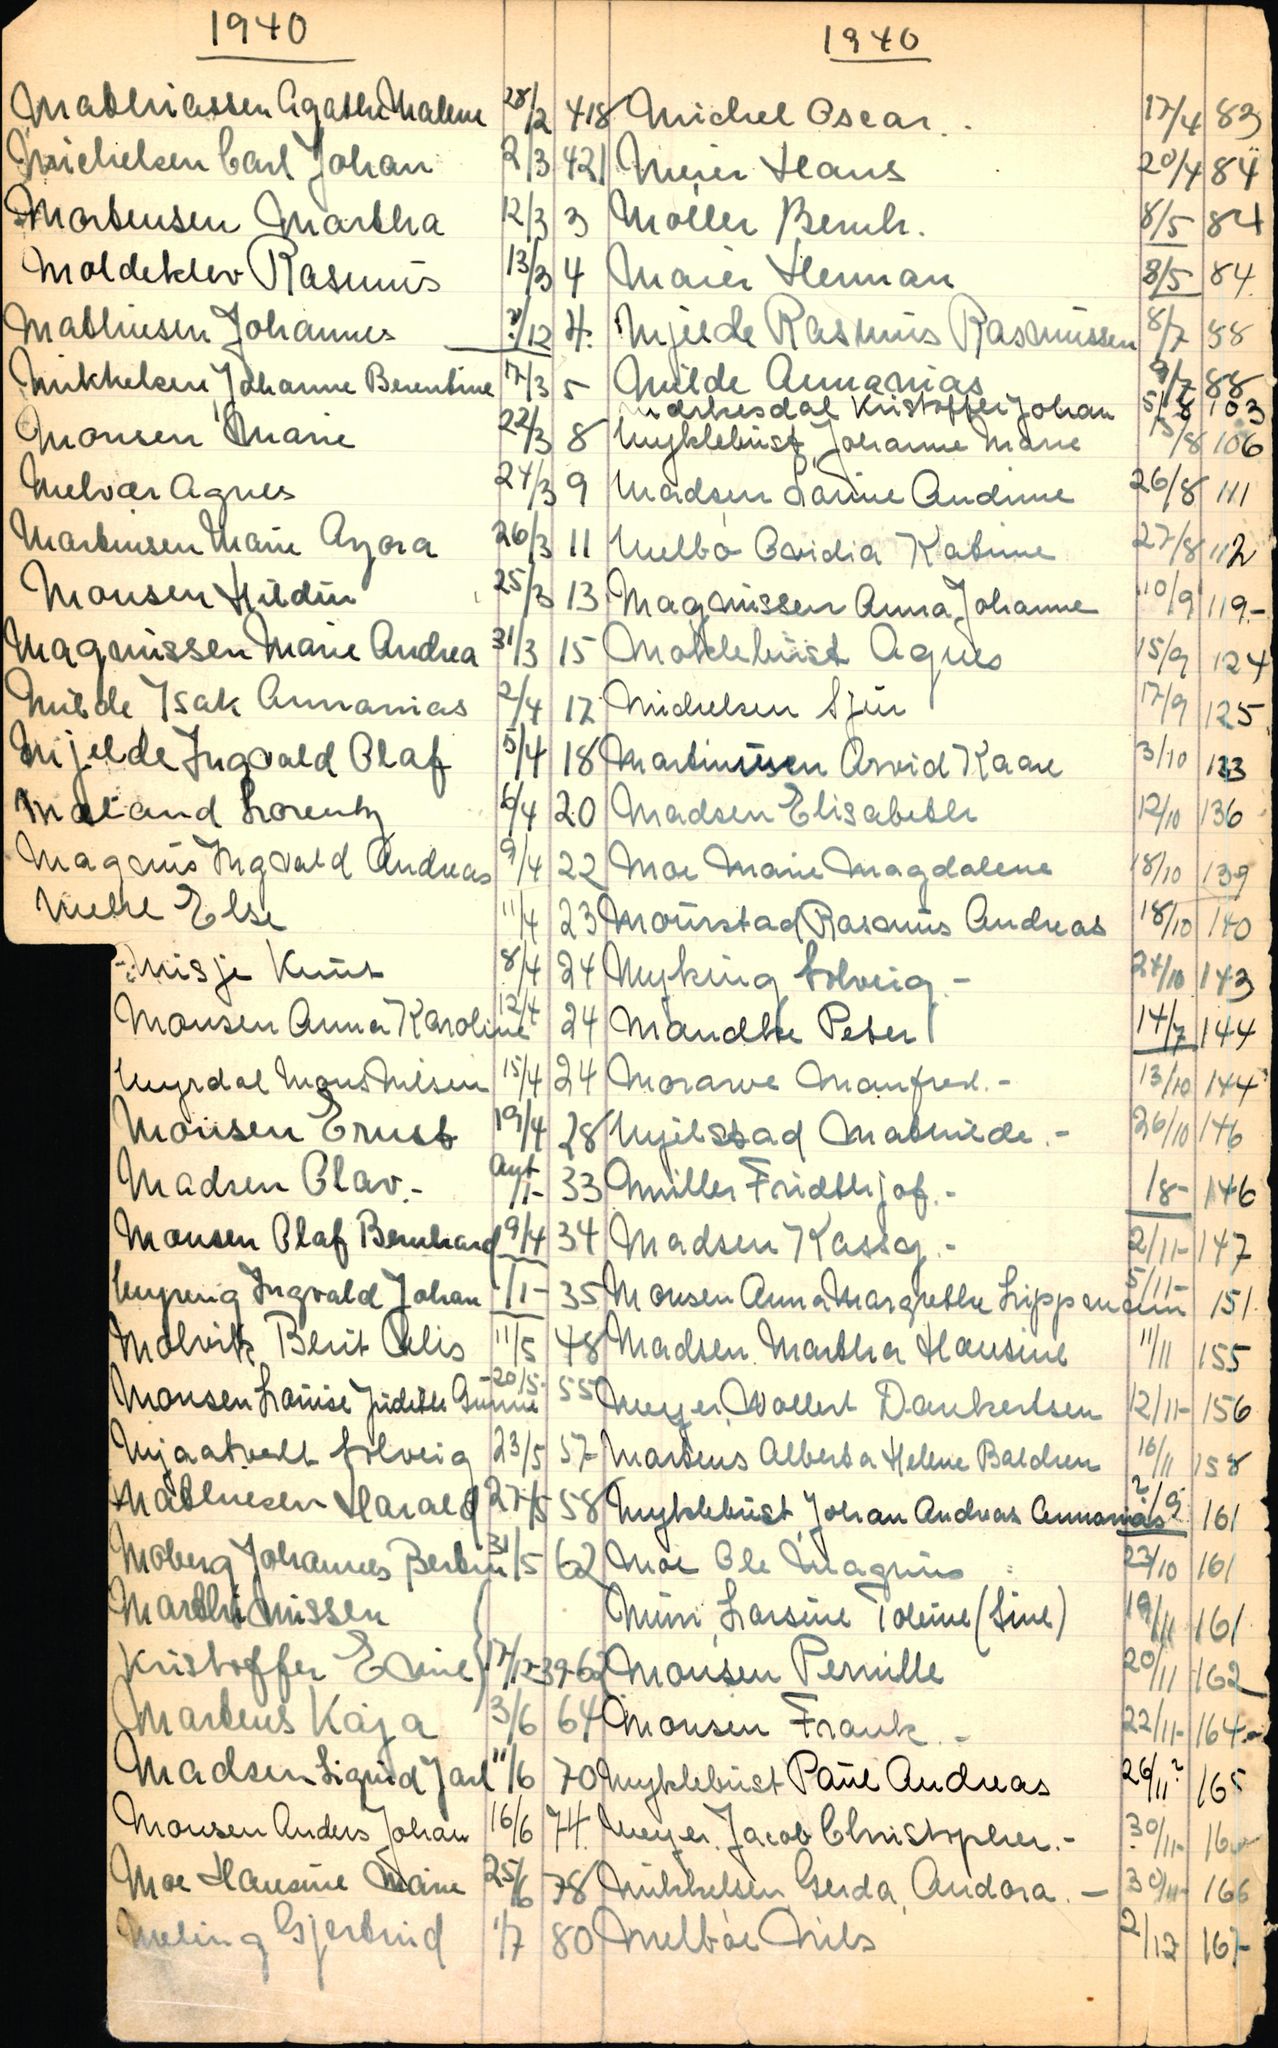 1940
Mathiassen Agathe Malene 28/2 418
Michelsen Carl Johan 2/3 421
Mortensen Martha 12/3 3
Moldeklev Rasmus 13/3 4
Mathiesen Johannes ?/12 4
Mikkelsen, Johanne Berentine 17/3 5
Monsen Marie 22/3 8
Melvær Agnes 24/3 9
Martinsen Marie Agora 26/3 11
Monsen Hildur 25/3 13
Magnussen Marie Andrea 31/3 15
Milde Isak Annanias 2/4 17
Mjelde Ingvald Olaf 5/4 18
Mæland Lorentz 6/4 20
Magnus Ingvald Andreas 9/4 22
Else 11/4 23
Misje Knut 8/4 24
Monsen Anna Karoline 12/4 24
Myrdal Mons Nilsen 15/4 24
Monsen Ernst 19/4 28
Madsen Olav.- 1/1- 33
Monsen Olaf Bernhard 9/4 34
Ingvald Johan 1/1- 35
Molvik Berit Alis 11/5 48
Monsen Louise Judithe Gunne 20/5- 55
Mjaatvedt Solveig 23/5 57-
Mathiesen Harald 27/5 58
Moberg Johannes Bertin 31/5 62
Marthinussen
Kristoffer Edvine 17/12-39-62
Martens Kaja 3/6 64
Madsen Sigurd Jarl 11/6 70
Monsen Anders Johan 16/6 74.
Moe Hansine Marie 25/6 78
Meling Gjertrud 1/7 80
1940
Michel Oscar.. 17/4 83
Meier Hans 20/4 84
Møller Bernh. 8/5 84
Maier Herman 8/5 84.
Mjelde Rasmus Rasmussen 8/7 88
Milde Annanias 9/7 88
Mørkesdal Kristoffer Johan 5/8 103
Myklebust, Johanne Marie 15/8 106
Madsen Laurine Andrine 26/8 111
Melbö Ovidia Katrine 27/8 112
Magnussen Anna, Johanne 10/9 119-
Moldebust Agnes 15/9 124
Michelsen Sjur 17/9 125
Martinussen Arvid Kaare 3/10 133
Madsen Elisabeth 12/10 136
Moe Marie Magdalene 18/10 139
Mourstad Rasmus Andreas 18/10 140
Myking Solveig.- 24/10 143
Mandke Peter 14/7 144
Morawe Manfred.- 13/10 144
Mjelstad Mathilde.- 26/10 146
Müller Fridthjof.- 18- 146
Madsen Kassy.- 2/11- 147
Monsen Anna Margrethe Lippmann 5/11- 151.
Madsen Martha Hansine 11/11 155
Meyer, Wollert Dankertsen 12/11- 156
Martens Alberta Helene Baldrun 16/11 158
Myklebust, Johan Andreas Annanias 2/9 161
Moe Ole Magnus 27/10 161
Larsine Toline (Sine) 19/11 161
Monsen Pernille 20/11 162
Monsen Frank.- 22/11- 164-
Myklebust Paul Andreas 26/11? 165
Meyer, Jacob Christopher.- 30/11-
Mikkelsen, Gerda, Andora.- 30/11- 166
Melbøe Nils 2/12 167-